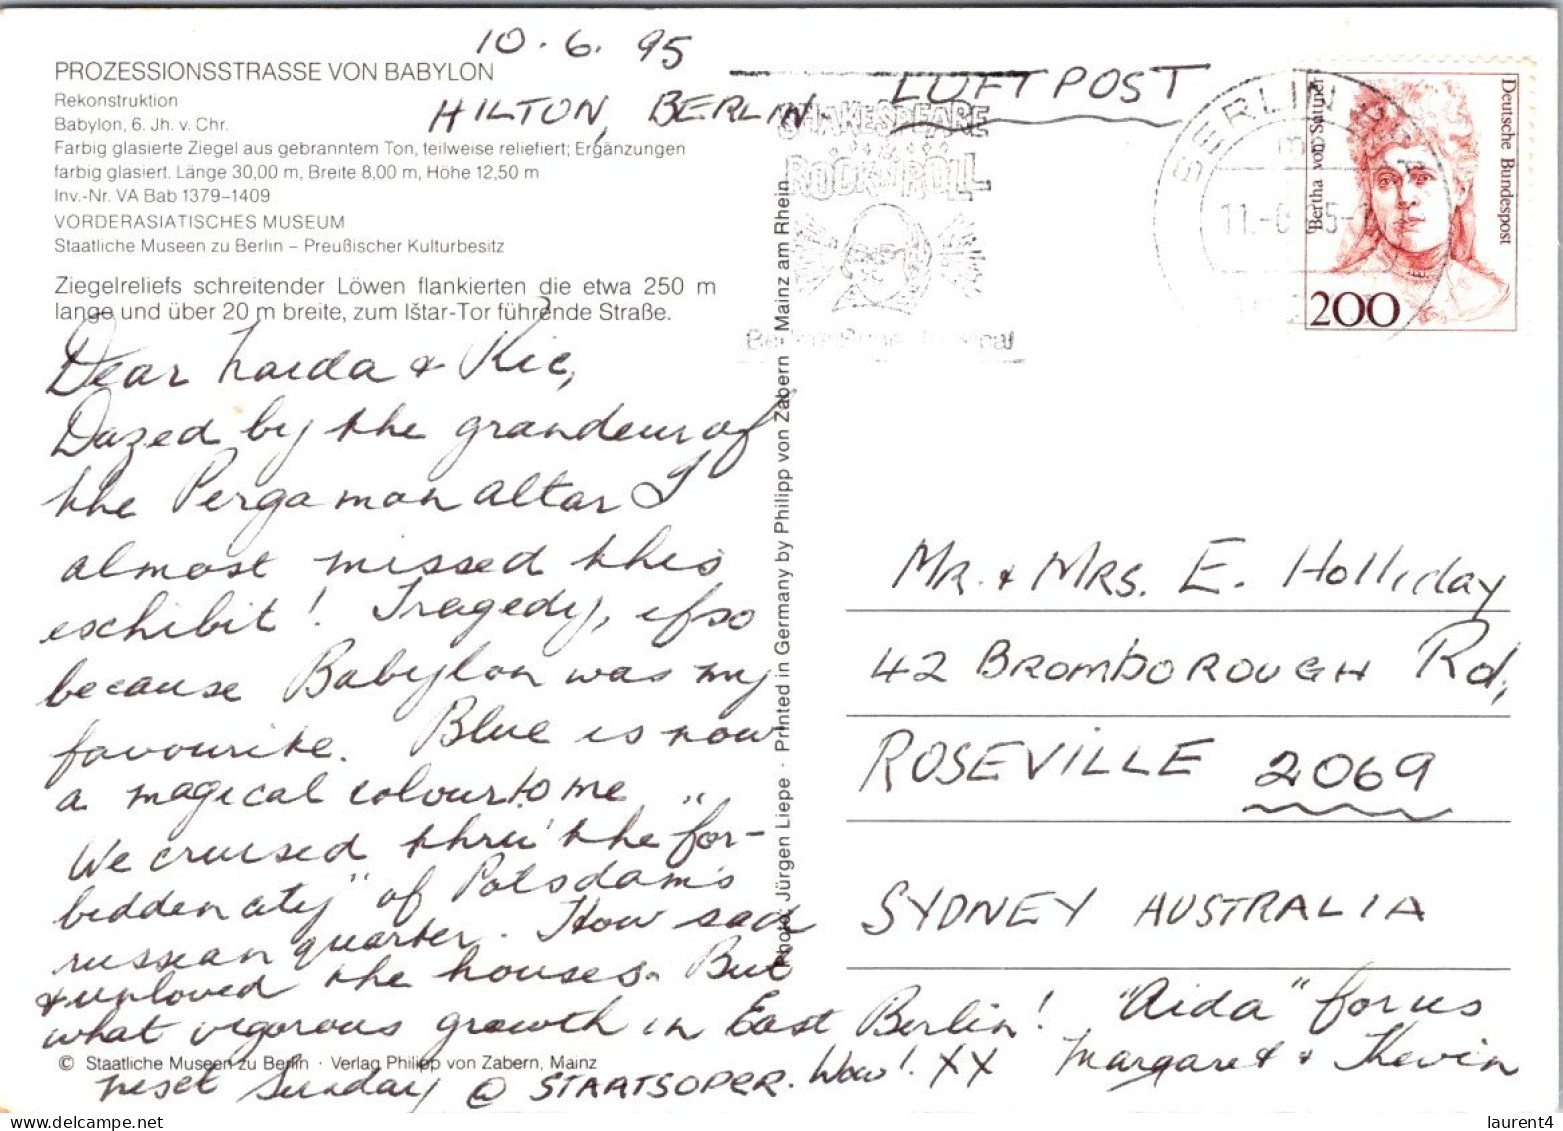 10.6.95
HILTON, BERLIN
LUFTPOST
PROZESSIONSSTRASSE VON BABYLON
Rekonstruktion
Babylon, 6. Jh. v. Chr.
Farbig glasierte Ziegel aus gebranntem Ton, teilweise reliefiert; Ergänzungen
farbig glasiert. Länge 30,00 m, Breite 8,00 m, Höhe 12,50 m
Inv.-Nr. VA Bab 1379–1409
VORDERASIATISCHES MUSEUM
Staatliche Museen zu Berlin – Preußischer Kulturbesitz
Ziegelreliefs schreitender Löwen flankierten die etwa 250 m
lange und über 20 m breite, zum Ištar-Tor führende Straße.
Dear & Ric,
Dazed by the grandeur of
the Pergamon altar I
almost missed this
eschibit! Tragedy, if so
because Babylon was my
favourite. Blue is now
a magical colour to me
We cruised thru' the "for-
bidden city" of Potsdam's
russian quarter. How sad
& unloved the houses. But
what vigorous growth in East Berlin! "Aida" for us
next Sunday @ STAATSOPER. Wow! XX Margaret & Kevin
© Staatliche Museen zu Berlin · Verlag Philipp von Zabern, Mainz
Photo: Jürgen Liepe · Printed in Germany by Philipp von Zabern · Mainz am Rhein
SHAKESPEARE
ROCK & ROLL
BERLIN
11.
Deutsche Bundespost
Bertha von Suttner
200
Mr. & Mrs. E. Holliday
42 BROMBOROUGH Rd,
ROSEVILLE 2069
SYDNEY AUSTRALIA
laurent4